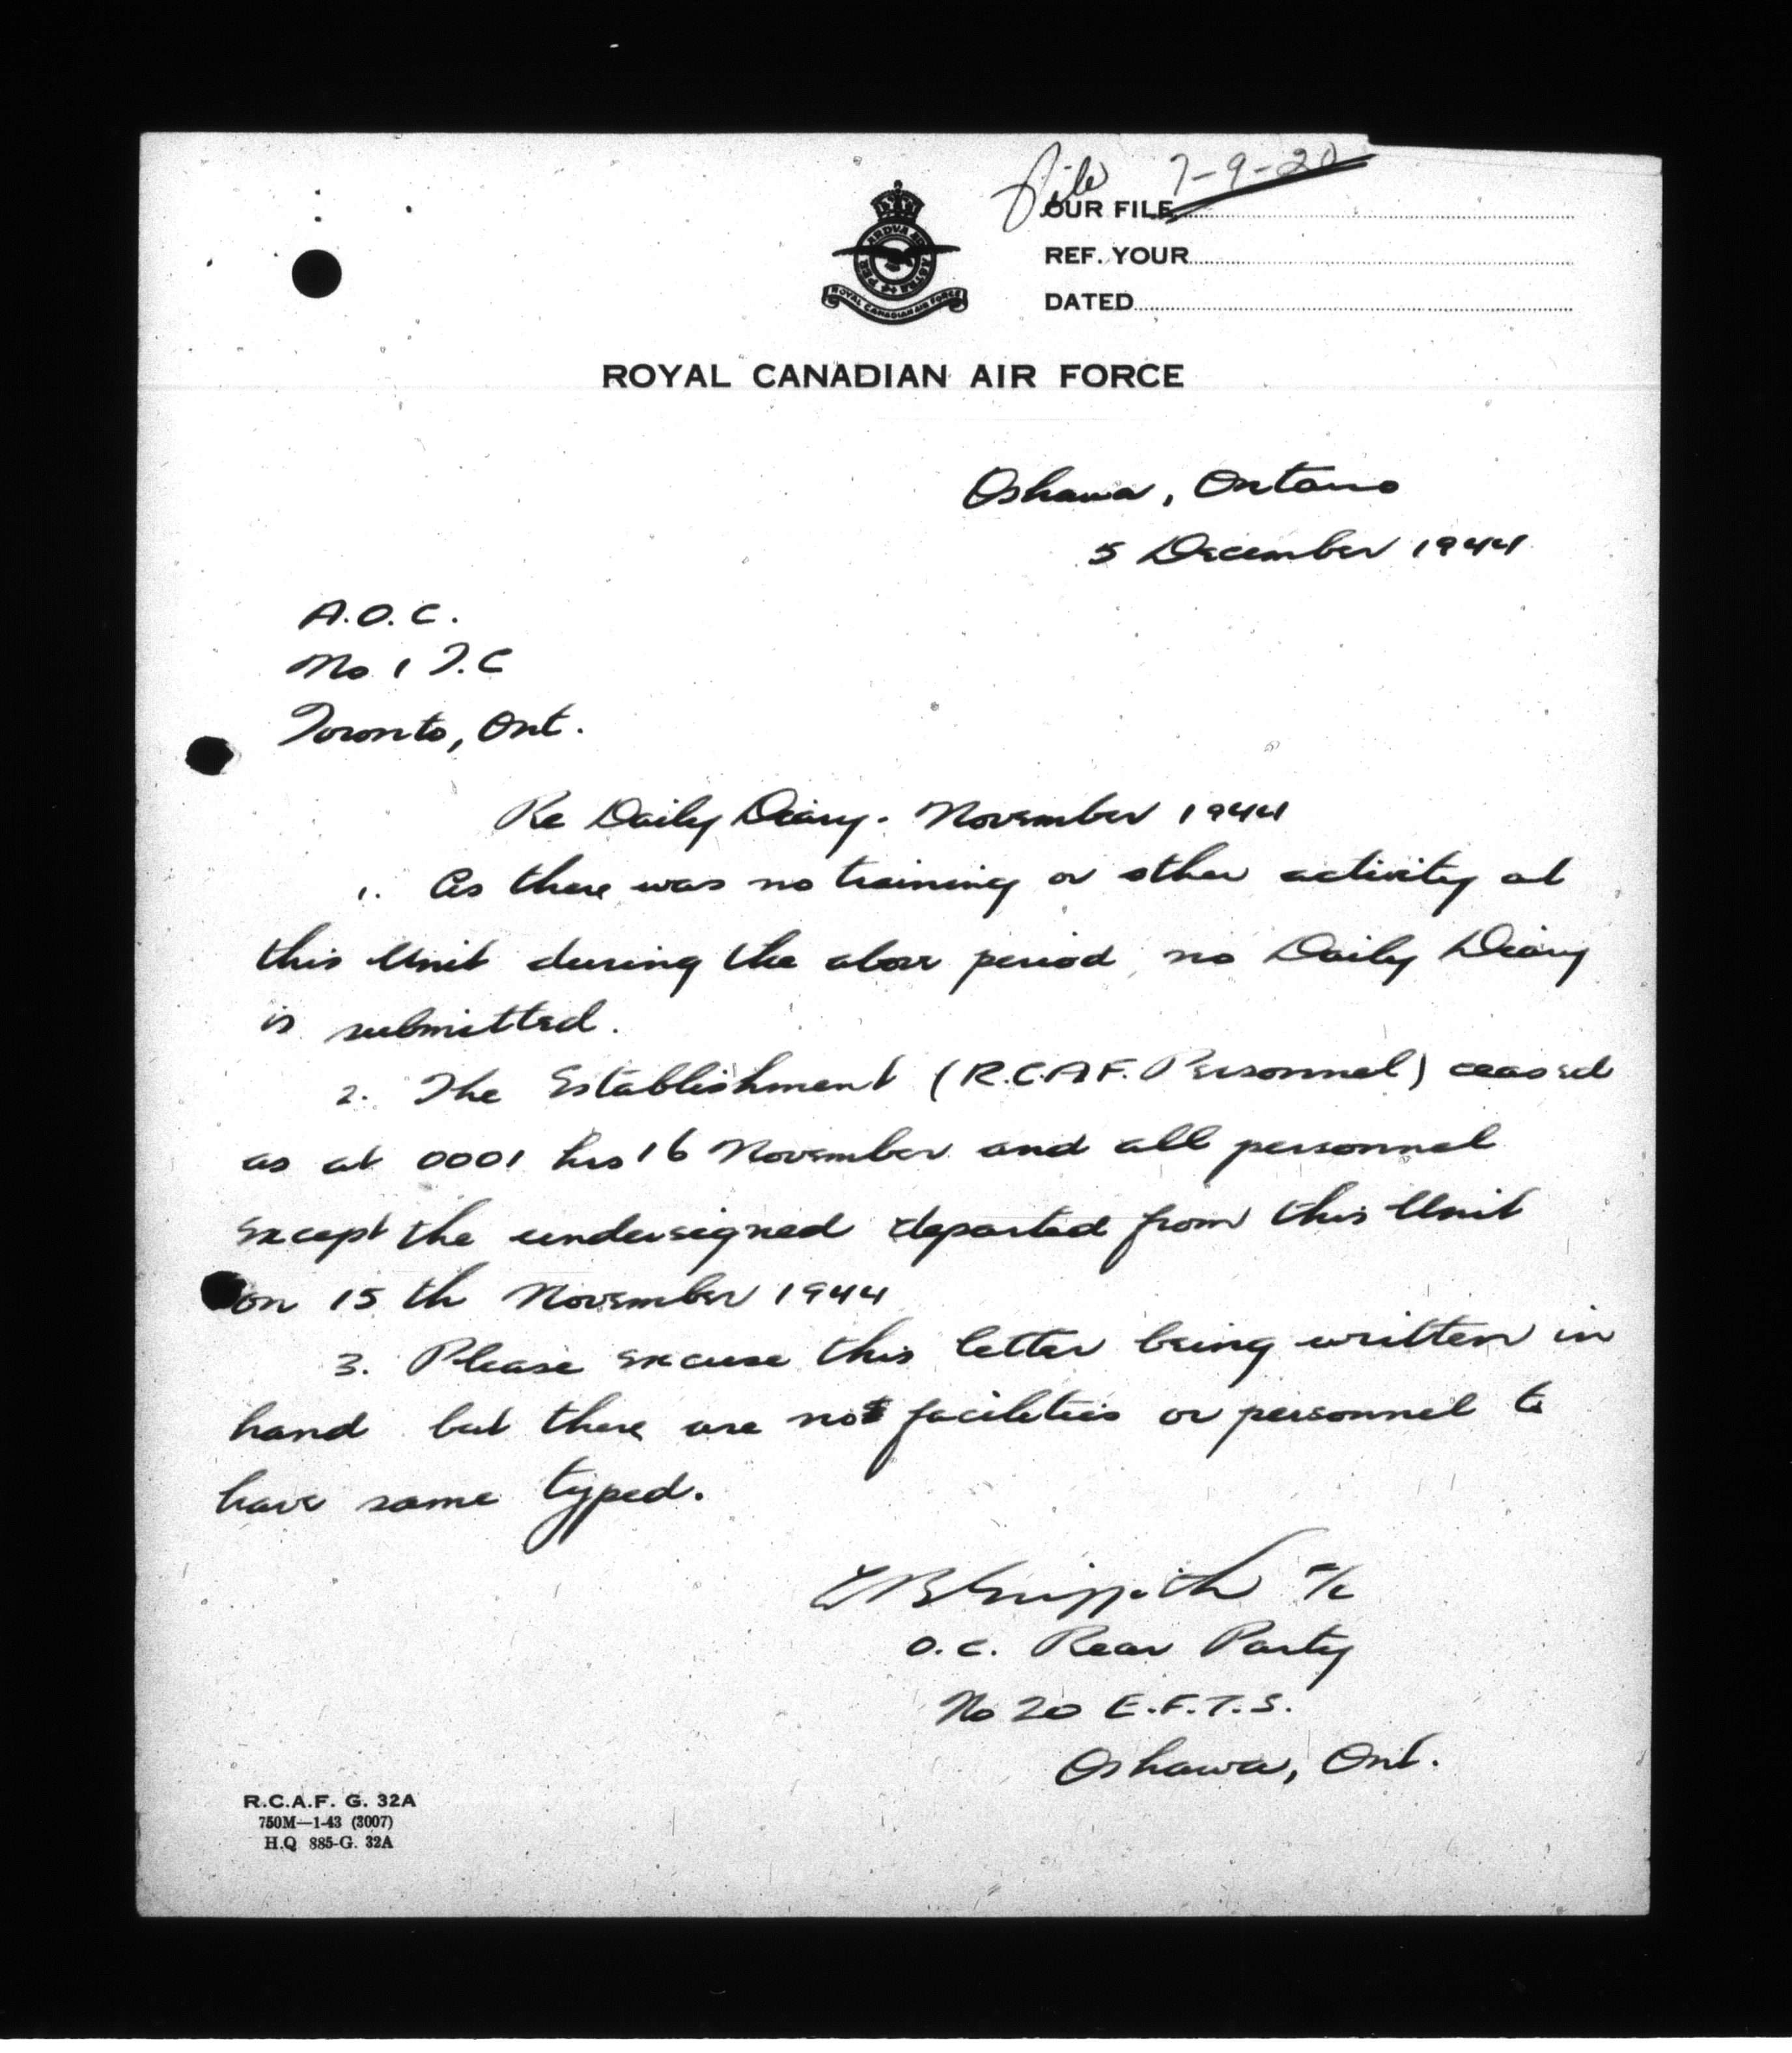 File 7-9-20
OUR FILE
REF. YOUR
DATED
ROYAL CANADIAN AIR FORCE
ROYAL CANADIAN AIR FORCE
Oshawa, Ontario
5 December 1944
A.O.C.
No 1 T.C
Toronto, Ont.
Re Daily Diary. November 1944
1. As there was no training or other activity at
this Unit during the above period, no Daily Diary
is submitted.
2. The Establishment (R.C.A.F. Personnel) ceased
as at 0001 hrs 16 November and all personnel
except the undersigned departed from this Unit
on 15 th November 1944
3. Please excuse this letter being written in
hand but there are no facilities or personnel to
have same typed.
Griffith
O.C. Rear Party
No 20 E.F.T.S.
Oshawa, Ont.
R.C.A.F. G. 32A
750M—1-43 (3007)
H.Q 885-G. 32A